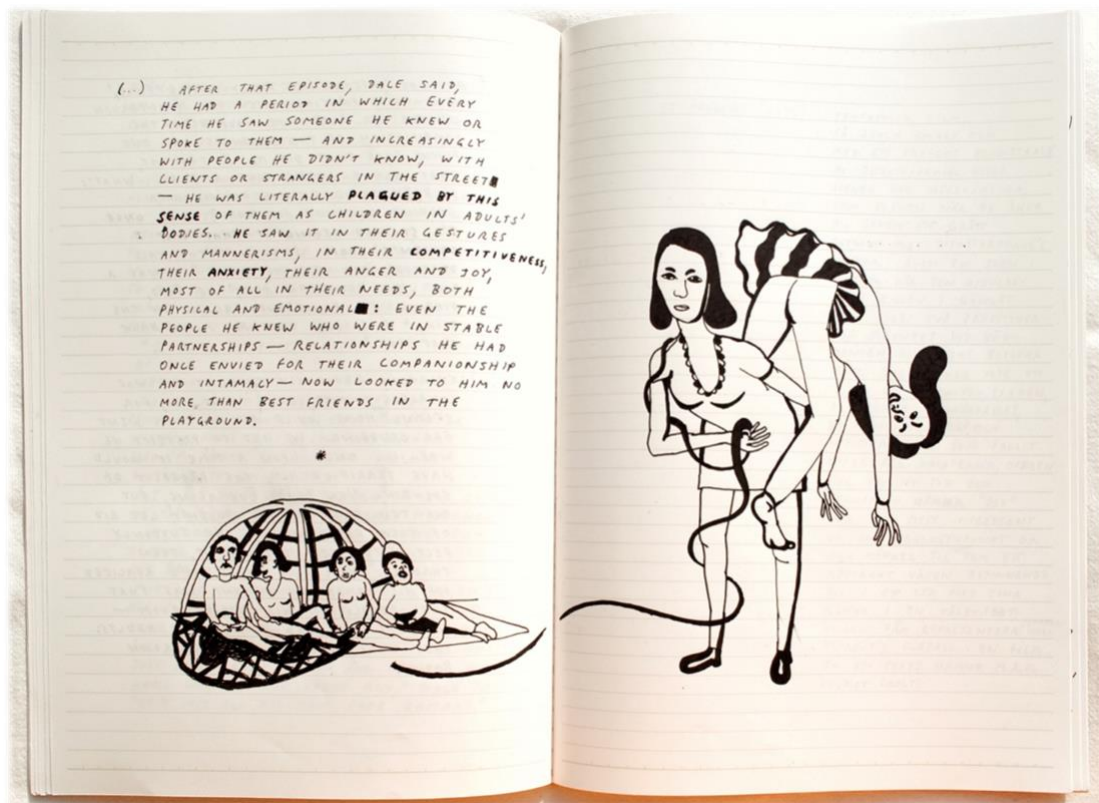 (...) AFTER THAT EPISODE, DALE SAID,
HE HAD A PERIOD IN WHICH EVERY
TIME HE SAW SOMEONE HE KNEW OR
SPOKE TO THEM — AND INCREASINGLY
WITH PEOPLE HE DIDN'T KNOW, WITH
CLIENTS OR STRANGERS IN THE STREET
— HE WAS LITERALLY PLAGUED BY THIS
SENSE OF THEM AS CHILDREN IN ADULTS'
BODIES. HE SAW IT IN THEIR GESTURES
AND MANNERISMS, IN THEIR COMPETITIVENESS,
THEIR ANXIETY, THEIR ANGER AND JOY,
MOST OF ALL IN THEIR NEEDS, BOTH
PHYSICAL AND EMOTIONAL: EVEN THE
PEOPLE HE KNEW WHO WERE IN STABLE
PARTNERSHIPS — RELATIONSHIPS HE HAD
ONCE ENVIED FOR THEIR COMPANIONSHIP
AND INTAMACY — NOW LOOKED TO HIM NO
MORE THAN BEST FRIENDS IN THE
PLAYGROUND.
*